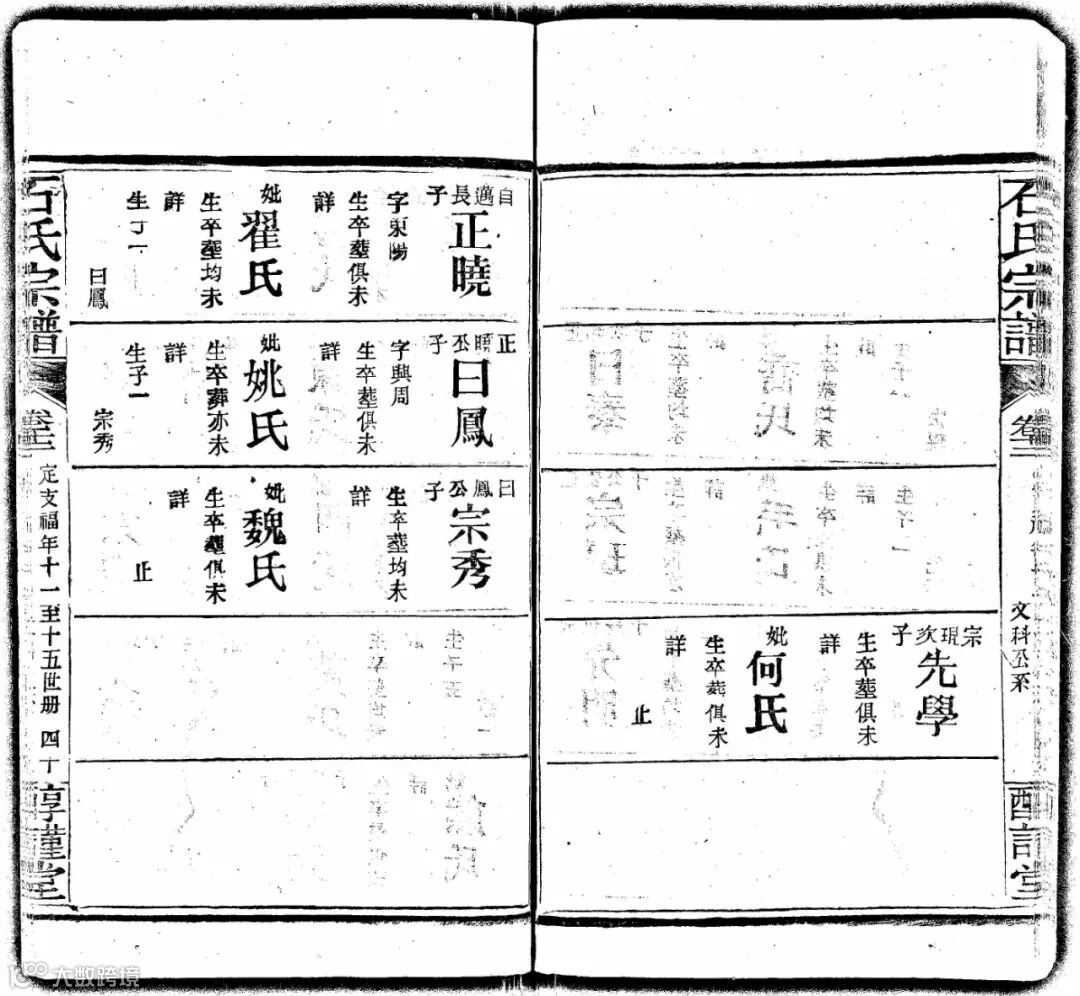 石氏宗譜
卷三
文科公系
宗琨次子
先學
生卒塟俱未
詳
妣
何氏
生卒葬俱未
詳
止
自邁長子
正曉
字東陽
生卒塟俱未
詳
妣
翟氏
生卒塟均未
詳
生子一
曰鳳
正曉公子
曰鳳
字興周
生卒塟俱未
詳
妣
姚氏
生卒葬亦未
詳
生子一
宗秀
曰鳳公子
宗秀
生卒塟均未
詳
妣
魏氏
生卒塟俱未
詳
止
石氏宗譜
定支福年十一至十五世册 四十
惇謹堂
大数跨境